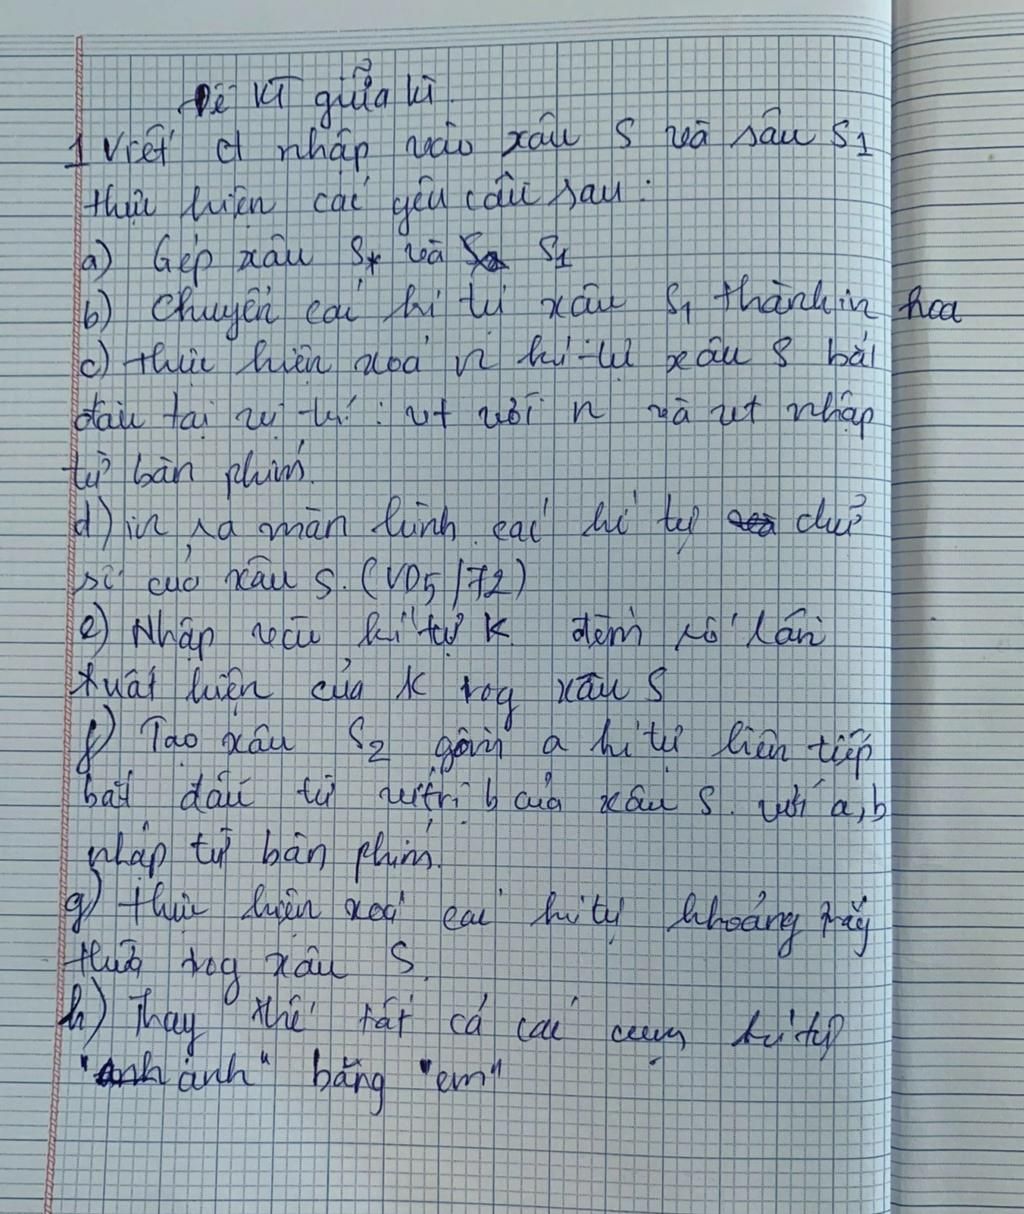 Đề KT giữa kì
1 Viết ct nhập vào xâu S và sâu S1
thực hiện các yêu cầu sau:
a) Ghép xâu S và S1
b) Chuyển các kí tự xâu S1 thành in hoa
c) thực hiện xoá n kí tự xâu S bắt
đầu tại vị trí: vt với n và vt nhập
từ bàn phím.
d) in ra màn hình các kí tự chữ
số của xâu S. (VD5/72)
e) Nhập vào kí tự K. đếm số lần
xuất hiện của K trog xâu S
f) Tạo xâu S2 gồm a kí tự liên tiếp
bắt đầu từ vị trí b của xâu S. với a, b
nhập từ bàn phím.
g) thực hiện xoá các kí tự khoảng trắg
thừa trog xâu S.
h) Thay thế tất cả các cụm kí tự
"anh" bằng "em"